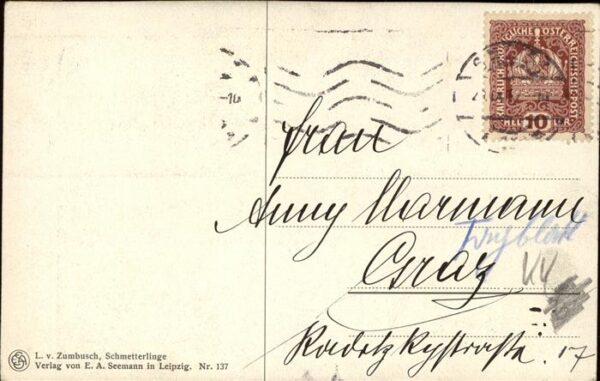 KAIS. KÖNIGLICHE ÖSTERREICHISCHE POST
HELLER 10
Frau
Anny Marmann
Graz
Radetzkystraße. 17
L. v. Zumbusch, Schmetterlinge
Verlag von E. A. Seemann in Leipzig. Nr. 137